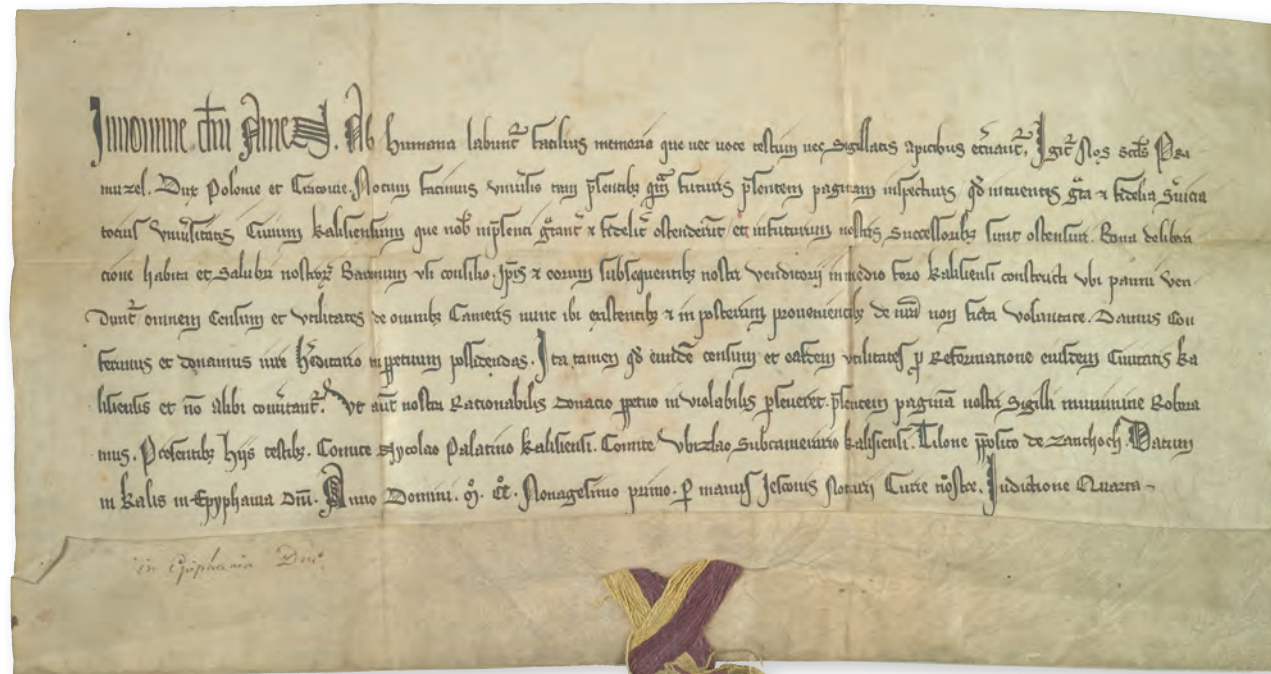 Jnnomine dni Amen. Ab humana labunt facilius memoria que nec uoce testium nec Sigillatis apicibus et'nant'. Jgit' Nos scds Pre-
muzel. Dux Polonie et Cracouie. Notum facimus vniu'sis tam p'sentibz q'm futuris p'sentem paginam inspecturis qd intuentes g'ta & fidelia s'uicia
tocius vniu'sitatis Ciuium kalisiensium que nob inp'senti g'tant' & fidelit' ostender'nt et infuturum nostris Successoribz sunt ostensuri. Bona delibera
cione habita et Salubri nostror' Baronum vsi consilio. Jp'is & eorum subsequentibz nostri venditorij inmedio foro kalisiensi constructi vbi panni ven
dunt' omnem Censum et vtilitates de omnibz Cameris nunc ibi existentibz & in posterum prouenientibz de mera non ficta voluntate. Damus Con
ferimus et donamus iure h'editario inp'petuum possidendas. Jta tamen qd euide' censum et easdem vtilitates p Reformatione eiusdem Ciuitatis ka
lisiensis et no' alibi conu'tant'. Vt aut' nostra Rationabilis Donacio p'petuo inviolabilis p'seueret. p'sentem pagina' nostri Sigilli munimine Robora
mus. Presentibz hijs testibz. Comite Nycolao Palatino kalisiensi. Comite vbizlao Subcamerario kalisiensi. Tilone p'posito de Zanthoch. Datum
in kalis in Epyphania Dni. Anno Domini. M. CC. Nonagesimo primo. P manus Jesconis Notarij Curie nostre. Indictione Quarta
in Epiphania Dni.